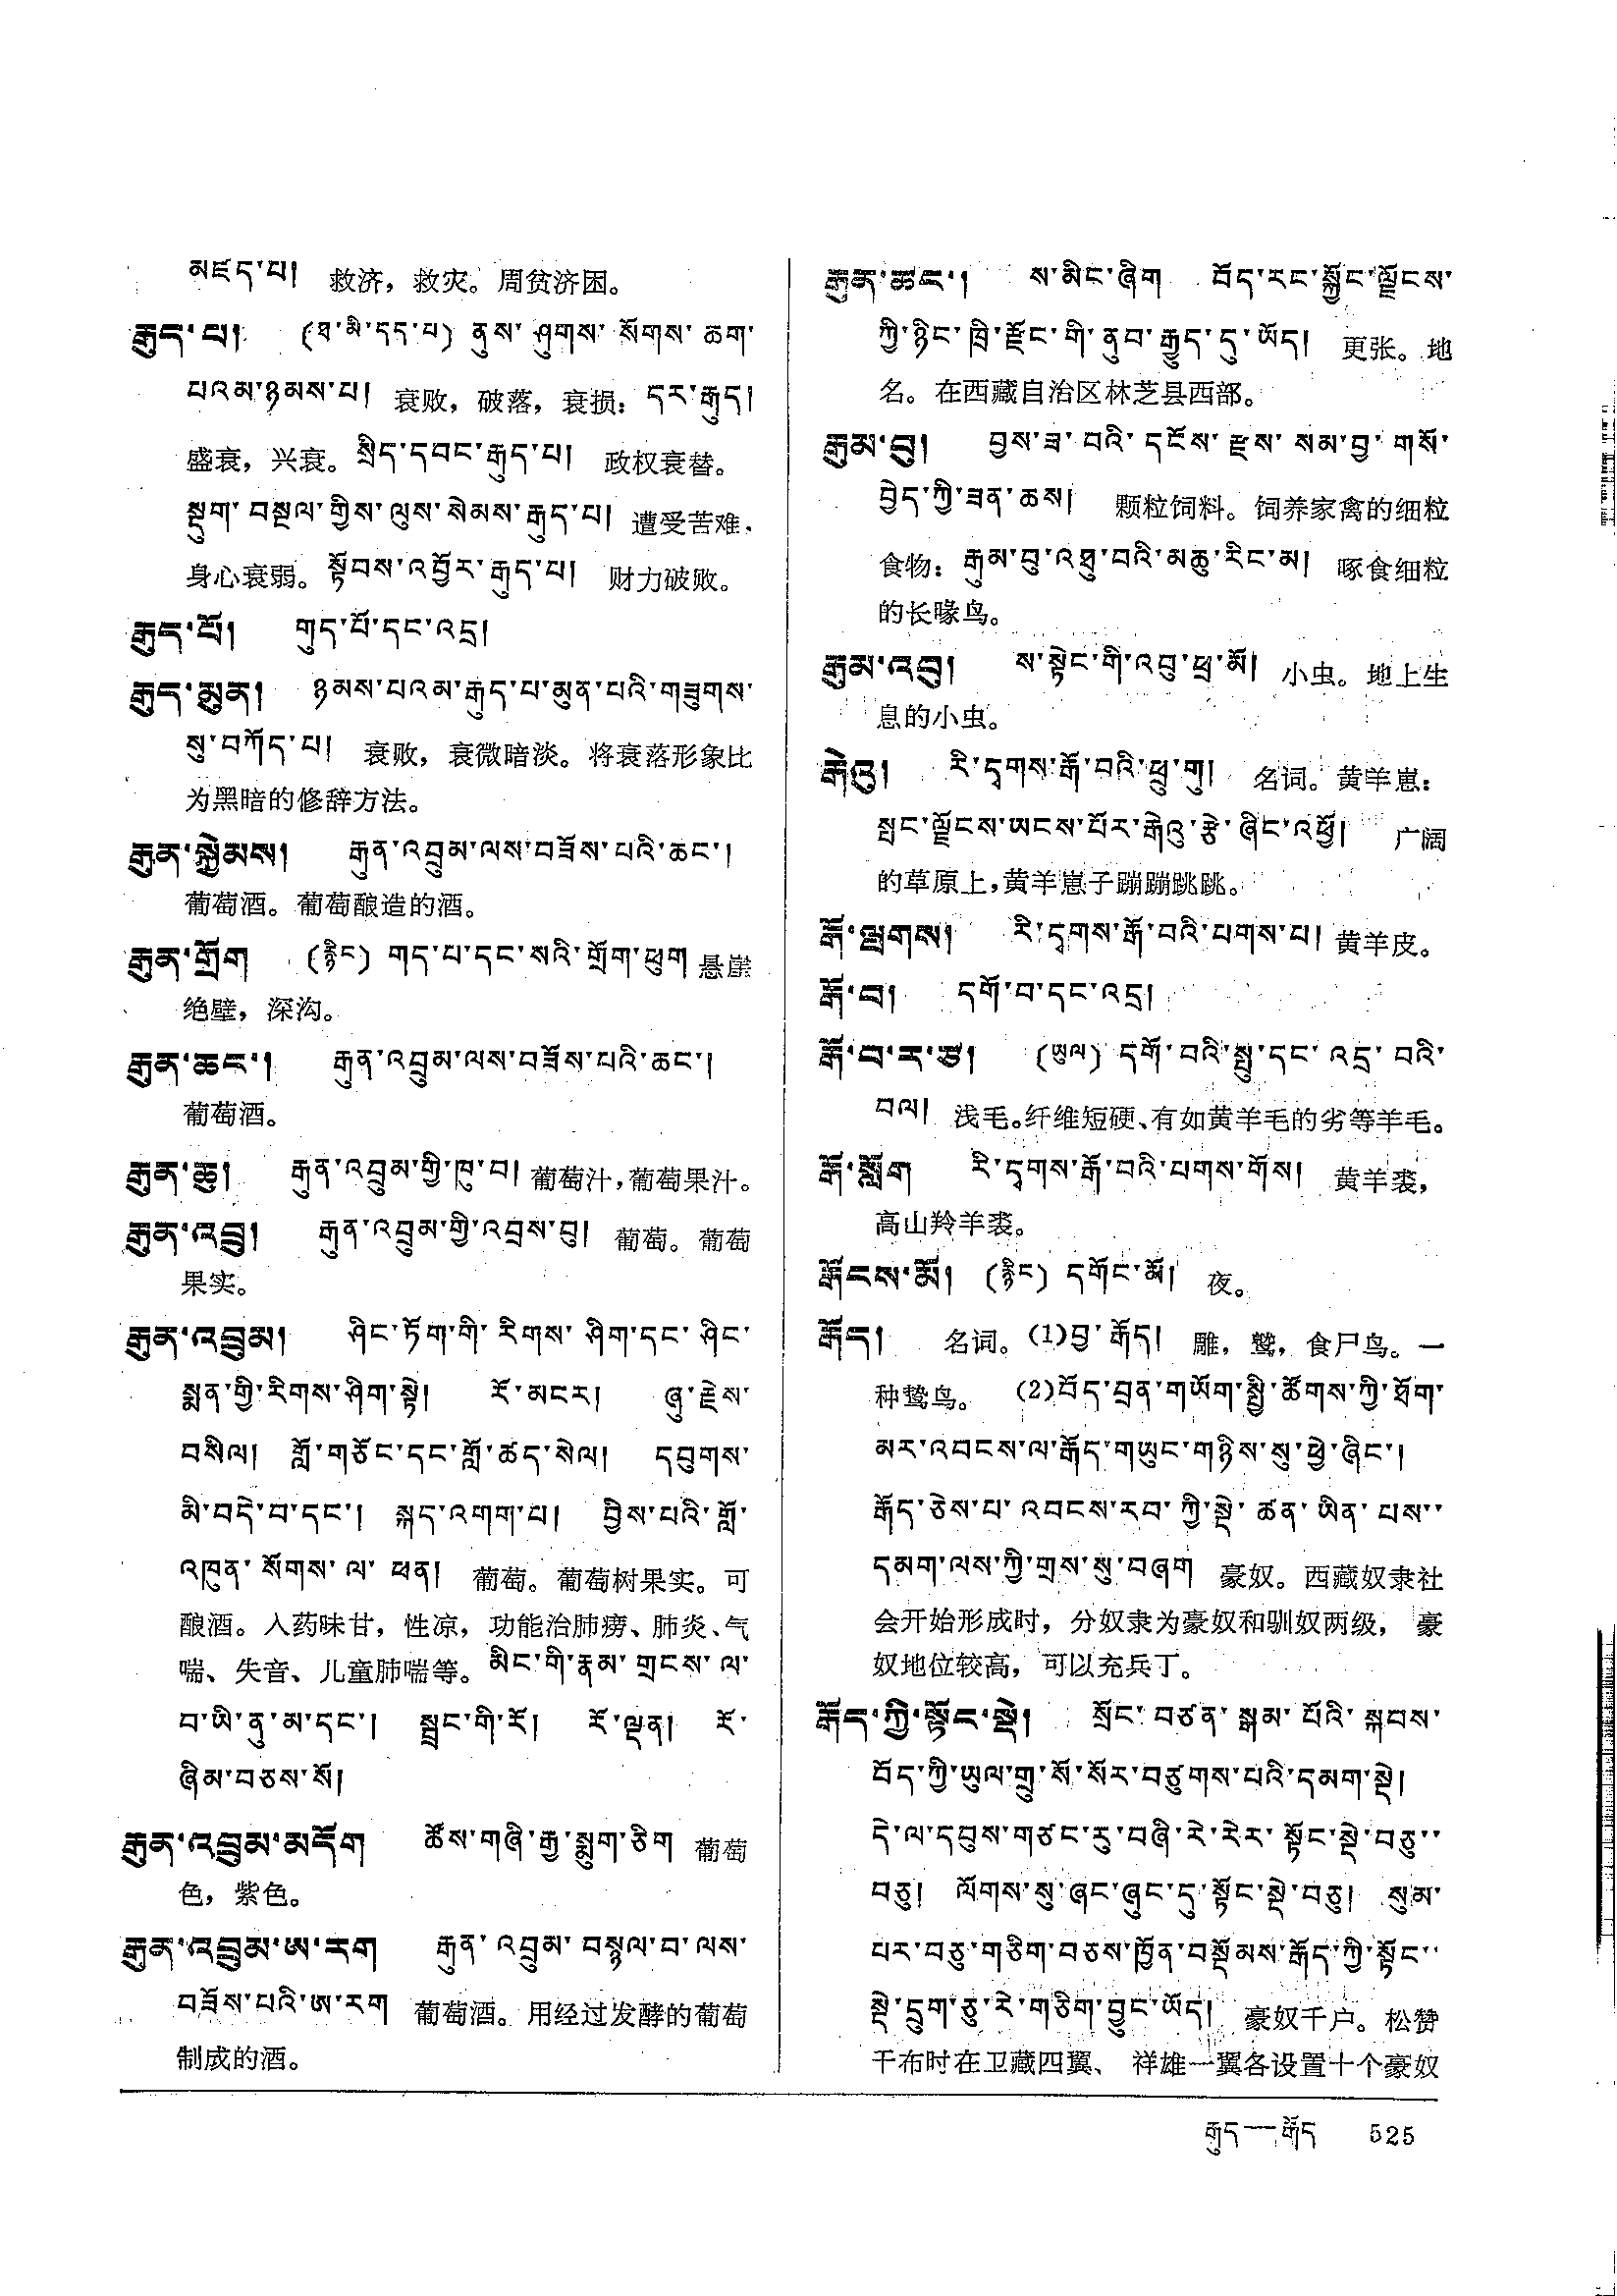 མཛད་པ།  救济，救灾。周贫济困。
རྒུད་པ།  (ཐ་མི་དད་པ) ནུས་ཤུགས་སོགས་ཆག་
པའམ་ཉམས་པ།  衰败，破落，衰损：དར་རྒུད།
盛衰，兴衰。སྲིད་དབང་རྒུད་པ།  政权衰替。
སྡུག་བསྔལ་གྱིས་ལུས་སེམས་རྒུད་པ། 遭受苦难，
身心衰弱。སྟོབས་འབྱོར་རྒུད་པ།  财力破败。
རྒུད་པོ།  གུད་པོ་དང་འདྲ།
རྒུད་མུན།  ཉམས་པའམ་རྒུད་པ་མུན་པའི་གཟུགས་
སུ་བཀོད་པ།  衰败，衰微暗淡。将衰落形象比
为黑暗的修辞方法。
རྒུན་སྐྱེམས།  རྒུན་འབྲུམ་ལས་བཟོས་པའི་ཆང་།
葡萄酒。葡萄酿造的酒。
རྒུན་གྲོག  (རྙིང) གད་པ་དང་སའི་གྲོག་ཕུག 悬崖
绝壁，深沟。
རྒུན་ཆང་།  རྒུན་འབྲུམ་ལས་བཟོས་པའི་ཆང་།
葡萄酒。
རྒུན་ཆུ།  རྒུན་འབྲུམ་གྱི་ཁུ་བ། 葡萄汁，葡萄果汁。
རྒུན་འབྲུ།  རྒུན་འབྲུམ་གྱི་འབྲས་བུ།  葡萄。葡萄
果实。
རྒུན་འབྲུམ།  ཤིང་ཏོག་གི་རིགས་ཤིག་དང་ཤིང་
སྨན་གྱི་རིགས་ཤིག་སྟེ།  རོ་མངར།  ཞུ་རྗེས་
བསིལ།  གློ་གཅོང་དང་གློ་ཚད་སེལ།  དབུགས་
མི་བདེ་བ་དང་།  སྐད་འགག་པ།  བྱིས་པའི་གློ་
འཁུན་སོགས་ལ་ཕན།  葡萄。葡萄树果实。可
酿酒。入药味甘，性凉，功能治肺痨、肺炎、气
喘、失音、儿童肺喘等。མིང་གི་རྣམ་གྲངས་ལ་
བ་ཡི་ནུ་མ་དང་།  སྦྲང་གི་རོ།  རོ་ལྡན།  རོ་
ཞིམ་བཅས་སོ།
རྒུན་འབྲུམ་མདོག  ཚོས་གཞི་རྒྱ་སྨུག་ཅིག 葡萄
色，紫色。
རྒུན་འབྲུམ་ཨ་རག  རྒུན་འབྲུམ་བསྙལ་བ་ལས་
བཟོས་པའི་ཨ་རག  葡萄酒。用经过发酵的葡萄
制成的酒。
རྒུན་ཚང་།  ས་མིང་ཞིག  བོད་རང་སྐྱོང་ལྗོངས་
ཀྱི་ཉིང་ཁྲི་རྫོང་གི་ནུབ་རྒྱུད་དུ་ཡོད།  更张。地
名。在西藏自治区林芝县西部。
རྒུམ་བུ།  བྱས་ཟ་བའི་དངོས་རྫས་སམ་བྱ་གསོ་
བྱེད་ཀྱི་ཟན་ཆས།  颗粒饲料。饲养家禽的细粒
食物：རྒུམ་བུ་འཐུ་བའི་མཆུ་རིང་མ།  啄食细粒
的长喙鸟。
རྒུམ་འབུ།  ས་སྟེང་གི་འབུ་ཕྲ་མོ།  小虫。地上生
息的小虫。
རྒེའུ།  རི་དྭགས་རྒོ་བའི་ཕྲུ་གུ།  名词。黄羊崽：
སྤང་ལྗོངས་ཡངས་པོར་རྒེའུ་རྩེ་ཞིང་འཕྱོ།  广阔
的草原上，黄羊崽子蹦蹦跳跳。
རྒོ་ལྤགས།  རི་དྭགས་རྒོ་བའི་པགས་པ། 黄羊皮。
རྒོ་བ།  དགོ་བ་དང་འདྲ།
རྒོ་བ་ར་ཙ།  (ཡུལ) དགོ་བའི་སྤུ་དང་འདྲ་བའི་
བལ།  浅毛。纤维短硬、有如黄羊毛的劣等羊毛。
རྒོ་སློག  རི་དྭགས་རྒོ་བའི་པགས་གོས།  黄羊裘，
高山羚羊裘。
རྒོངས་མོ།  (རྙིང) དགོང་མོ།  夜。
རྒོད།  名词。(1)བྱ་རྒོད།  雕，鹫，食尸鸟。一
种鸷鸟。  (2)བོད་བྲན་གཡོག་སྤྱི་ཚོགས་ཀྱི་ཐོག་
མར་འབངས་ལ་རྒོད་གཡུང་གཉིས་སུ་ཕྱེ་ཞིང་།
རྒོད་ཅེས་པ་འབངས་རབ་ཀྱི་སྡེ་ཚན་ཡིན་པས་་
དམག་ལས་ཀྱི་གྲས་སུ་བཞག  豪奴。西藏奴隶社
会开始形成时，分奴隶为豪奴和驯奴两级，豪
奴地位较高，可以充兵丁。
རྒོད་ཀྱི་སྟོང་སྡེ།  སྲོང་བཙན་སྒམ་པོའི་སྐབས་
བོད་ཀྱི་ཡུལ་གྲུ་སོ་སོར་བཙུགས་པའི་དམག་སྡེ།
དེ་ལ་དབུས་གཙང་རུ་བཞི་རེ་རེར་སྟོང་སྡེ་བཅུ་་
བཅུ།  ལོགས་སུ་ཞང་ཞུང་དུ་སྟོང་སྡེ་བཅུ།  སུམ་
པར་བཅུ་གཅིག་བཅས་ཁྱོན་བསྡོམས་རྒོད་ཀྱི་སྟོང་་
སྡེ་དྲུག་ཅུ་རེ་གཅིག་བྱུང་ཡོད།  豪奴千户。松赞
干布时在卫藏四翼、祥雄一翼各设置十个豪奴
རྒུད—རྒོད  525